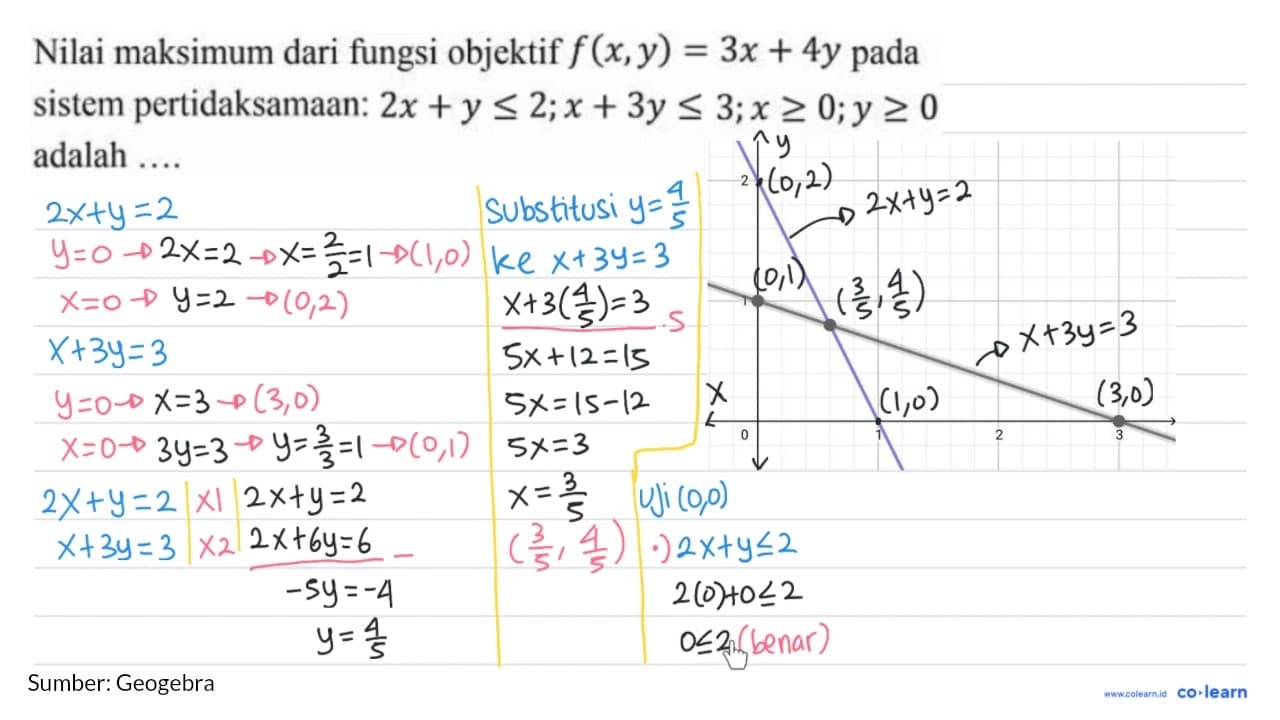 Nilai maksimum dari fungsi objektif f(x, y) = 3x + 4y pada
sistem pertidaksamaan: 2x + y ≤ 2; x + 3y ≤ 3; x ≥ 0; y ≥ 0
adalah ....
2x+y=2
y=0 → 2x=2 → x=2/2=1 → (1,0)
x=0 → y=2 → (0,2)
x+3y=3
y=0 → x=3 → (3,0)
x=0 → 3y=3 → y=3/3=1 → (0,1)
2x+y=2 | x1 | 2x+y=2
x+3y=3 | x2 | 2x+6y=6 −
-5y=-4
y=4/5
Substitusi y=4/5
ke x+3y=3
x+3(4/5)=3 .5
5x+12=15
5x=15-12
5x=3
x=3/5
(3/5, 4/5)
y
2
(0,2)
2x+y=2
(0,1)
1
(3/5, 4/5)
x+3y=3
X
(1,0)
(3,0)
0 1 2 3
Uji (0,0)
•) 2x+y≤2
2(0)+0≤2
0≤2 (benar)
Sumber: Geogebra
www.colearn.id co•learn